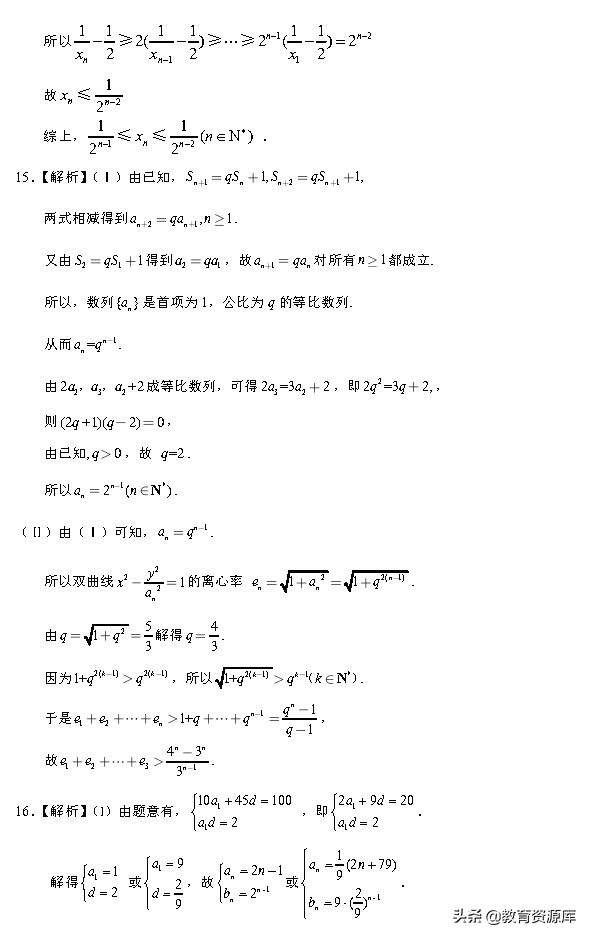 所以 1/xₙ − 1/2 ≥ 2(1/xₙ₋₁ − 1/2) ≥ ⋯ ≥ 2ⁿ⁻¹(1/x₁ − 1/2) = 2ⁿ⁻²
故 xₙ ≤ 1/2ⁿ⁻²
综上，1/2ⁿ⁻¹ ≤ xₙ ≤ 1/2ⁿ⁻² (n ∈ N*) .
15.【解析】(Ⅰ) 由已知，Sₙ₊₁ = qSₙ +1, Sₙ₊₂ = qSₙ₊₁ +1,
两式相减得到 aₙ₊₂ = qaₙ₊₁, n ≥ 1.
又由 S₂ = qS₁ +1 得到 a₂ = qa₁ ，故 aₙ₊₁ = qaₙ 对所有 n ≥ 1 都成立.
所以，数列 {aₙ} 是首项为 1，公比为 q 的等比数列.
从而 aₙ=qⁿ⁻¹.
由 2a₂，a₃，a₂+2 成等比数列，可得 2a₃=3a₂ + 2 ，即 2q²=3q + 2, ，
则 (2q +1)(q − 2) = 0 ，
由已知, q > 0 ，故 q=2 .
所以 aₙ = 2ⁿ⁻¹ (n ∈ N*) .
(Ⅱ) 由 (Ⅰ) 可知，aₙ = qⁿ⁻¹ .
所以双曲线 x² − y²/aₙ² = 1 的离心率 eₙ = √(1 + aₙ²) = √(1 + q²⁽ⁿ⁻¹⁾) .
由 q = √(1 + q²) = 5/3 解得 q = 4/3 .
因为 1+q²⁽ᵏ⁻¹⁾ > q²⁽ᵏ⁻¹⁾ ，所以 √(1+q²⁽ᵏ⁻¹⁾) > qᵏ⁻¹ (k ∈ N*) .
于是 e₁ + e₂ + ⋯ + eₙ >1+q + ⋯ + qⁿ⁻¹ = (qⁿ −1)/(q −1) ，
故 e₁ + e₂ + ⋯ + e₃ > (4ⁿ − 3ⁿ)/3ⁿ⁻¹ .
16.【解析】(1) 由题意有，{10a₁ + 45d = 100 a₁d = 2 ，即 {2a₁ + 9d = 20 a₁d = 2 .
解得 {a₁ = 1 d = 2 或 {a₁ = 9 d = 2/9 ，故 {aₙ = 2n −1 bₙ = 2ⁿ⁻¹ 或 {aₙ = 1/9 (2n + 79) bₙ = 9 · (2/9)ⁿ⁻¹ .
头条 @教育资源库